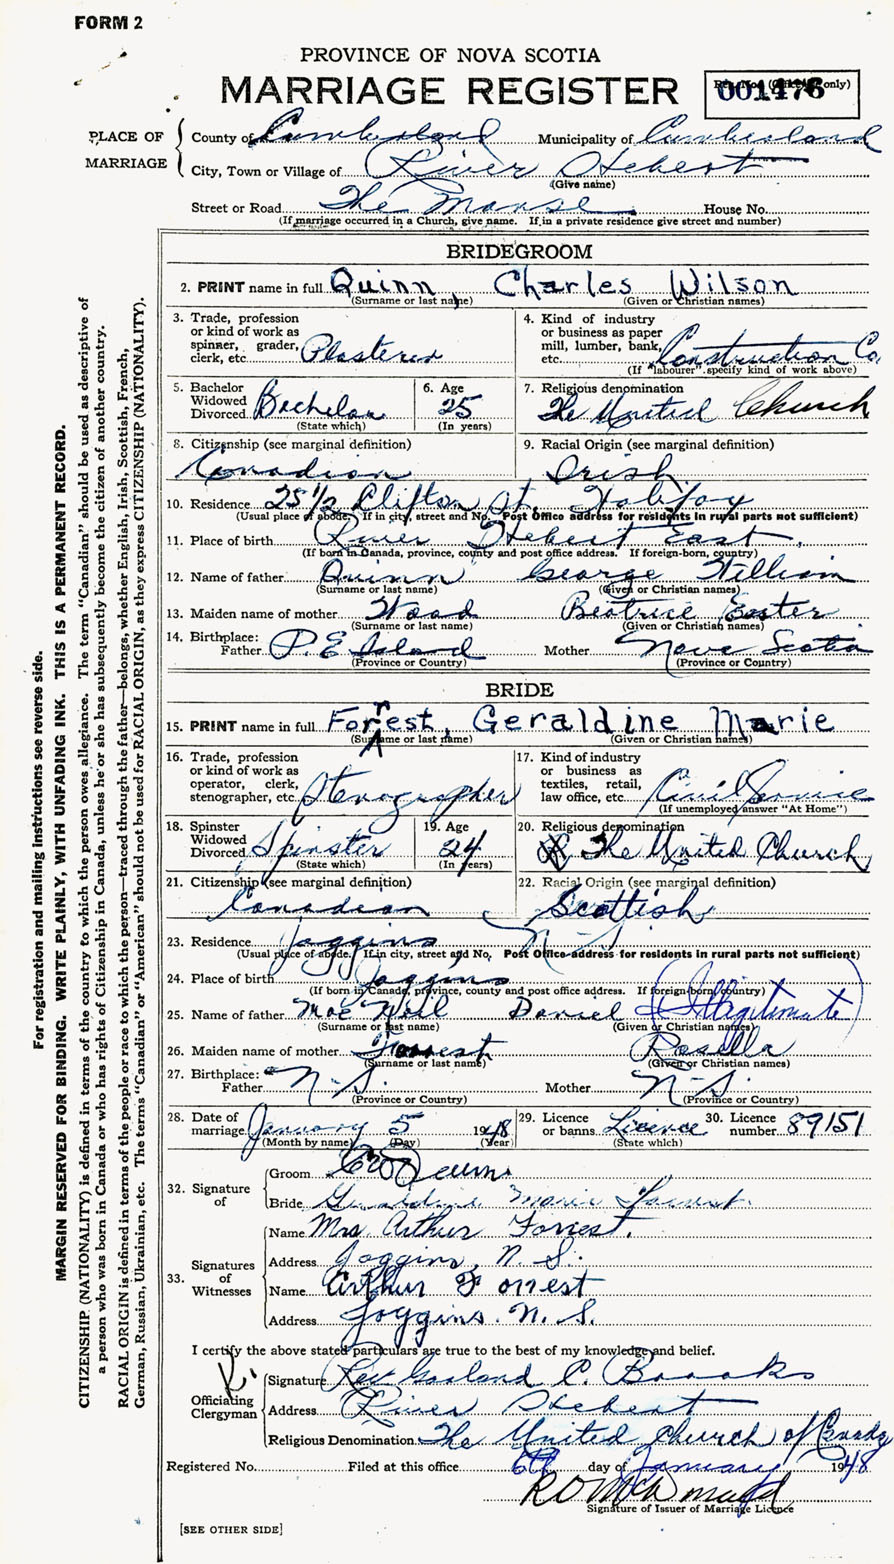 FORM 2
PROVINCE OF NOVA SCOTIA
MARRIAGE REGISTER
001476 only)
PLACE OF MARRIAGE
County of Cumberland Municipality of Cumberland
City, Town or Village of River Hebert
(Give name)
Street or Road The Manse House No.
(If marriage occurred in a Church, give name. If in a private residence give street and number)
BRIDEGROOM
2. PRINT name in full Quinn, Charles Wilson
(Surname or last name) (Given or Christian names)
3. Trade, profession or kind of work as spinner, grader, clerk, etc. Plasterer
4. Kind of industry or business as paper mill, lumber, bank, etc. Construction Co.
(If "labourer" specify kind of work above)
5. Bachelor Widowed Divorced Bachelor
(State which)
6. Age 25
(In years)
7. Religious denomination
The United Church
8. Citizenship (see marginal definition)
Canadian
9. Racial Origin (see marginal definition)
Irish
10. Residence 25 1/2 Clifton St. Halifax
(Usual place of abode. If in city, street and No. Post Office address for residents in rural parts not sufficient)
11. Place of birth River Hebert East
(If born in Canada, province, county and post office address. If foreign-born, country)
12. Name of father Quinn George William
(Surname or last name) (Given or Christian names)
13. Maiden name of mother Wood Beatrice Ester
(Surname or last name) (Given or Christian names)
14. Birthplace: Father P. E. Island Mother Nova Scotia
(Province or Country) (Province or Country)
BRIDE
15. PRINT name in full Forrest, Geraldine Marie
(Surname or last name) (Given or Christian names)
16. Trade, profession or kind of work as operator, clerk, stenographer, etc. Stenographer
17. Kind of industry or business as textiles, retail, law office, etc. Civil Service
(If unemployed answer "At Home")
18. Spinster Widowed Divorced Spinster
(State which)
19. Age 24
(In years)
20. Religious denomination
The United Church
21. Citizenship (see marginal definition)
Canadian
22. Racial Origin (see marginal definition)
Scottish
23. Residence Joggins N-S-
(Usual place of abode. If in city, street and No. Post Office address for residents in rural parts not sufficient)
24. Place of birth Joggins
(If born in Canada, province, county and post office address. If foreign-born, country)
25. Name of father Mac Neil Daniel (Illegitimate)
(Surname or last name) (Given or Christian names)
26. Maiden name of mother Forrest Rosella
(Surname or last name) (Given or Christian names)
27. Birthplace: Father N-S. Mother N-S.
(Province or Country) (Province or Country)
28. Date of marriage January 5 1948
(Month by name) (Day) (Year)
29. Licence or banns Licence
(State which)
30. Licence number 89151
32. Signature of
Groom C W Quinn
Bride Geraldine Marie Forrest.
33. Signatures of Witnesses
Name Mrs. Arthur Forrest.
Address Joggins, N. S.
Name Arthur Forrest
Address Joggins. N. S.
I certify the above stated particulars are true to the best of my knowledge and belief.
Officiating Clergyman
Signature Rev Garland C. Brooks
Address River Hebert
Religious Denomination The United Church of Canada
Registered No. Filed at this office 6th day of January 1948
Signature of Issuer of Marriage Licence
[SEE OTHER SIDE]
For registration and mailing instructions see reverse side.
MARGIN RESERVED FOR BINDING. WRITE PLAINLY, WITH UNFADING INK. THIS IS A PERMANENT RECORD.
CITIZENSHIP (NATIONALITY) is defined in terms of the country to which the person owes allegiance. The term "Canadian" should be used as descriptive of
a person who was born in Canada or who has rights of Citizenship in Canada, unless he or she has subsequently become the citizen of another country.
RACIAL ORIGIN is defined in terms of the people or race to which the person—traced through the father—belongs, whether English, Irish, Scottish, French,
German, Russian, Ukrainian, etc. The terms "Canadian" or "American" should not be used for RACIAL ORIGIN, as they express CITIZENSHIP (NATIONALITY).